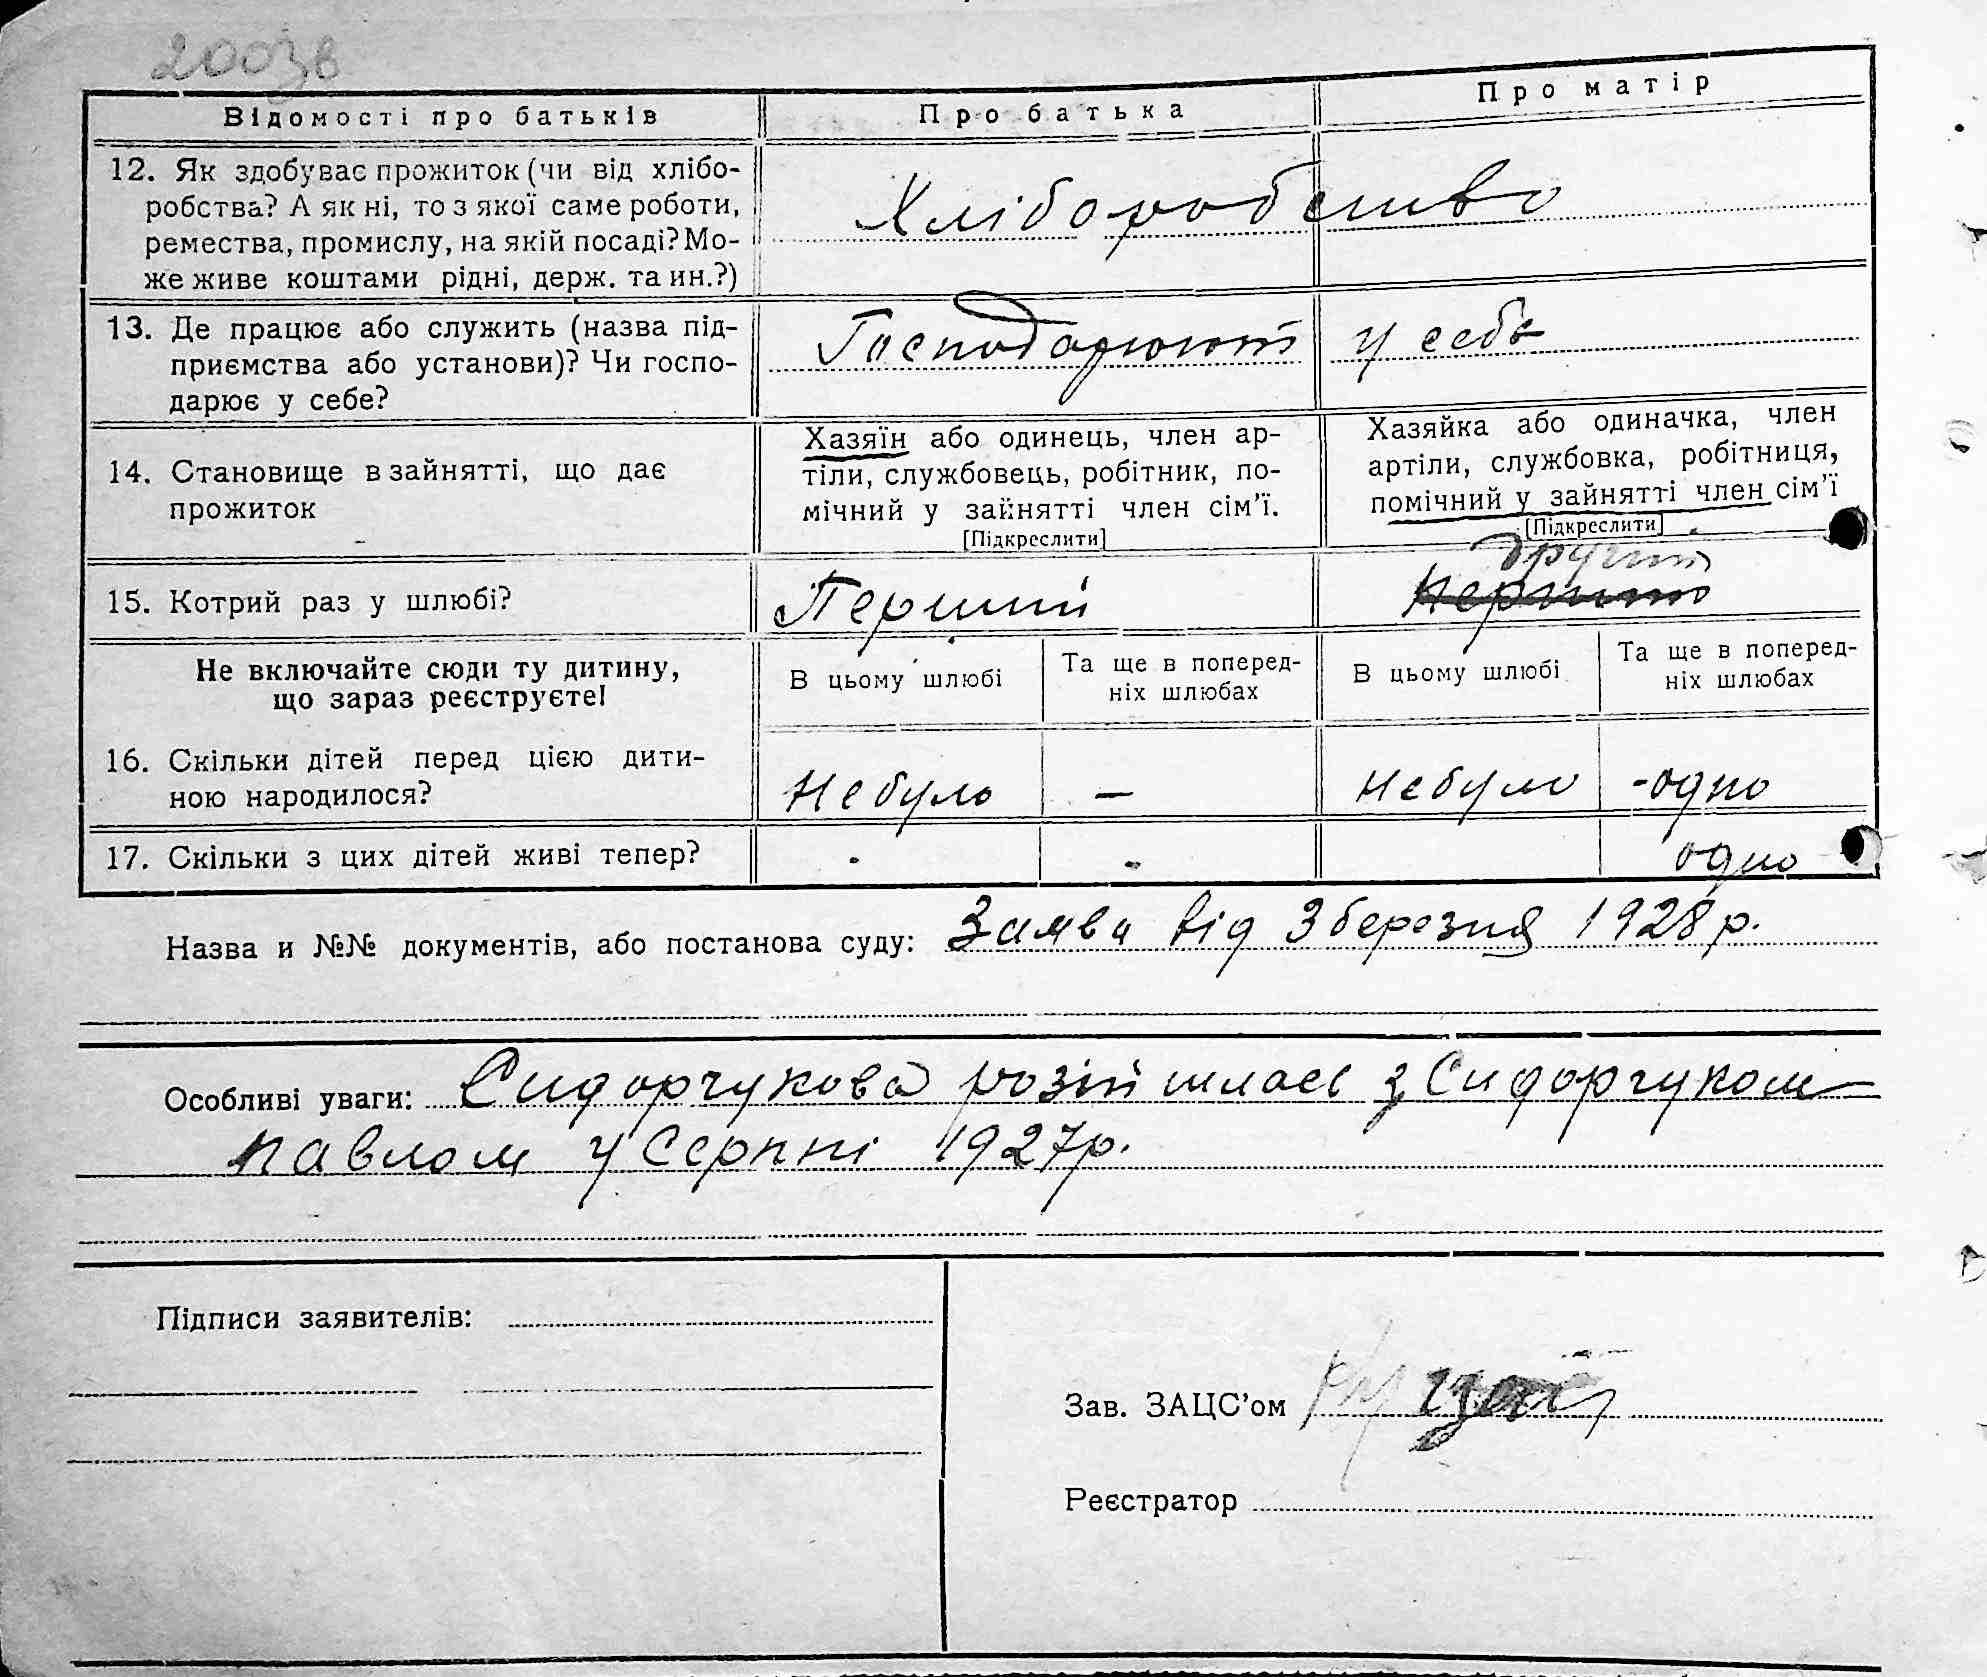 200зв
Відомості про батьків
Про батька
Про матір
12. Як здобуває прожиток (чи від хлібо-
робства? А як ні, то з якої саме роботи,
ремества, промислу, на якій посаді? Мо-
же живе коштами рідні, держ. та ин.?)
Хліборобство
13. Де працює або служить (назва під-
приємства або установи)? Чи госпо-
дарює у себе?
Господарюют у себе
14. Становище в зайнятті, що дає
прожиток
Хазяїн або одинець, член ар-
тіли, службовець, робітник, по-
мічний у зайнятті член сім'ї.
[Підкреслити]
Хазяйка або одиначка, член
артіли, службовка, робітниця,
помічний у зайнятті член сім'ї
[Підкреслити]
15. Котрий раз у шлюбі?
Перший
другий
Перший
Не включайте сюди ту дитину,
що зараз реєструєте!
В цьому шлюбі
Та ще в поперед-
ніх шлюбах
В цьому шлюбі
Та ще в поперед-
ніх шлюбах
16. Скільки дітей перед цією дити-
ною народилося?
Небуло
—
Небуло
-одно
17. Скільки з цих дітей живі тепер?
одно
Назва и №№ документів, або постанова суду: Заява від 3 березня 1928 р.
Особливі уваги: Сидорчукова розійшлась з Сидорчуком
Павлом у Серпні 1927р.
Підписи заявителів:
Зав. ЗАЦС'ом
Реєстратор